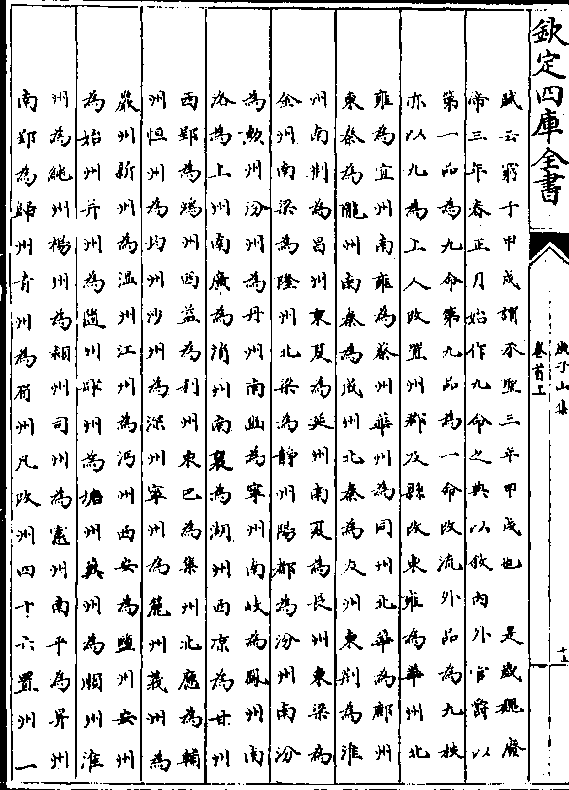 欽定四庫全書
庾子山集
卷首上
賦云窮于甲戌謂承聖三年甲戌也　是歲魏廢
帝三年春正月始作九命之典以敘內外官爵以
第一品為九命第九品為一命改流外品為九秩
亦以九為上人改置州郡及縣改東雍為華州北
雍為宜州南雍為蔡州華州為同州北華為鄜州
東秦為隴州南秦為成州北秦為交州東荆為淮
州南荆為昌州東夏為延州南夏為長州東梁為
金州南梁為隆州北梁為靜州陽都為汾州南汾
為勲州汾州為丹州南豳為寧州南岐為鳳州南
洛為上州南廣為淯州南襄為湖州西凉為甘州
西郢為鴻州西益為利州東巴為集州北應為輔
州恒州為均州沙州為深州寧州為麓州義州為
巖州新州為溫州江州為沔州西安為鹽州安州
為始州并州為隨州肆州為塘州冀州為順州淮
州為純州楊州為潁州司州為憲州南平為昇州
南郢為歸州青州為眉州凡改州四十六置州一